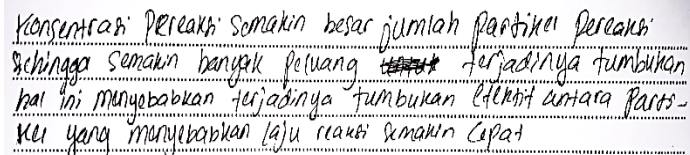 Konsentrasi Pereaksi semakin besar jumlah Partikel Pereaksi
sehingga semakin banyak peluang terjadinya tumbukan
hal ini menyebabkan terjadinya tumbukan efektif antara Parti-
kel yang menyebabkan laju reaksi semakin cepat